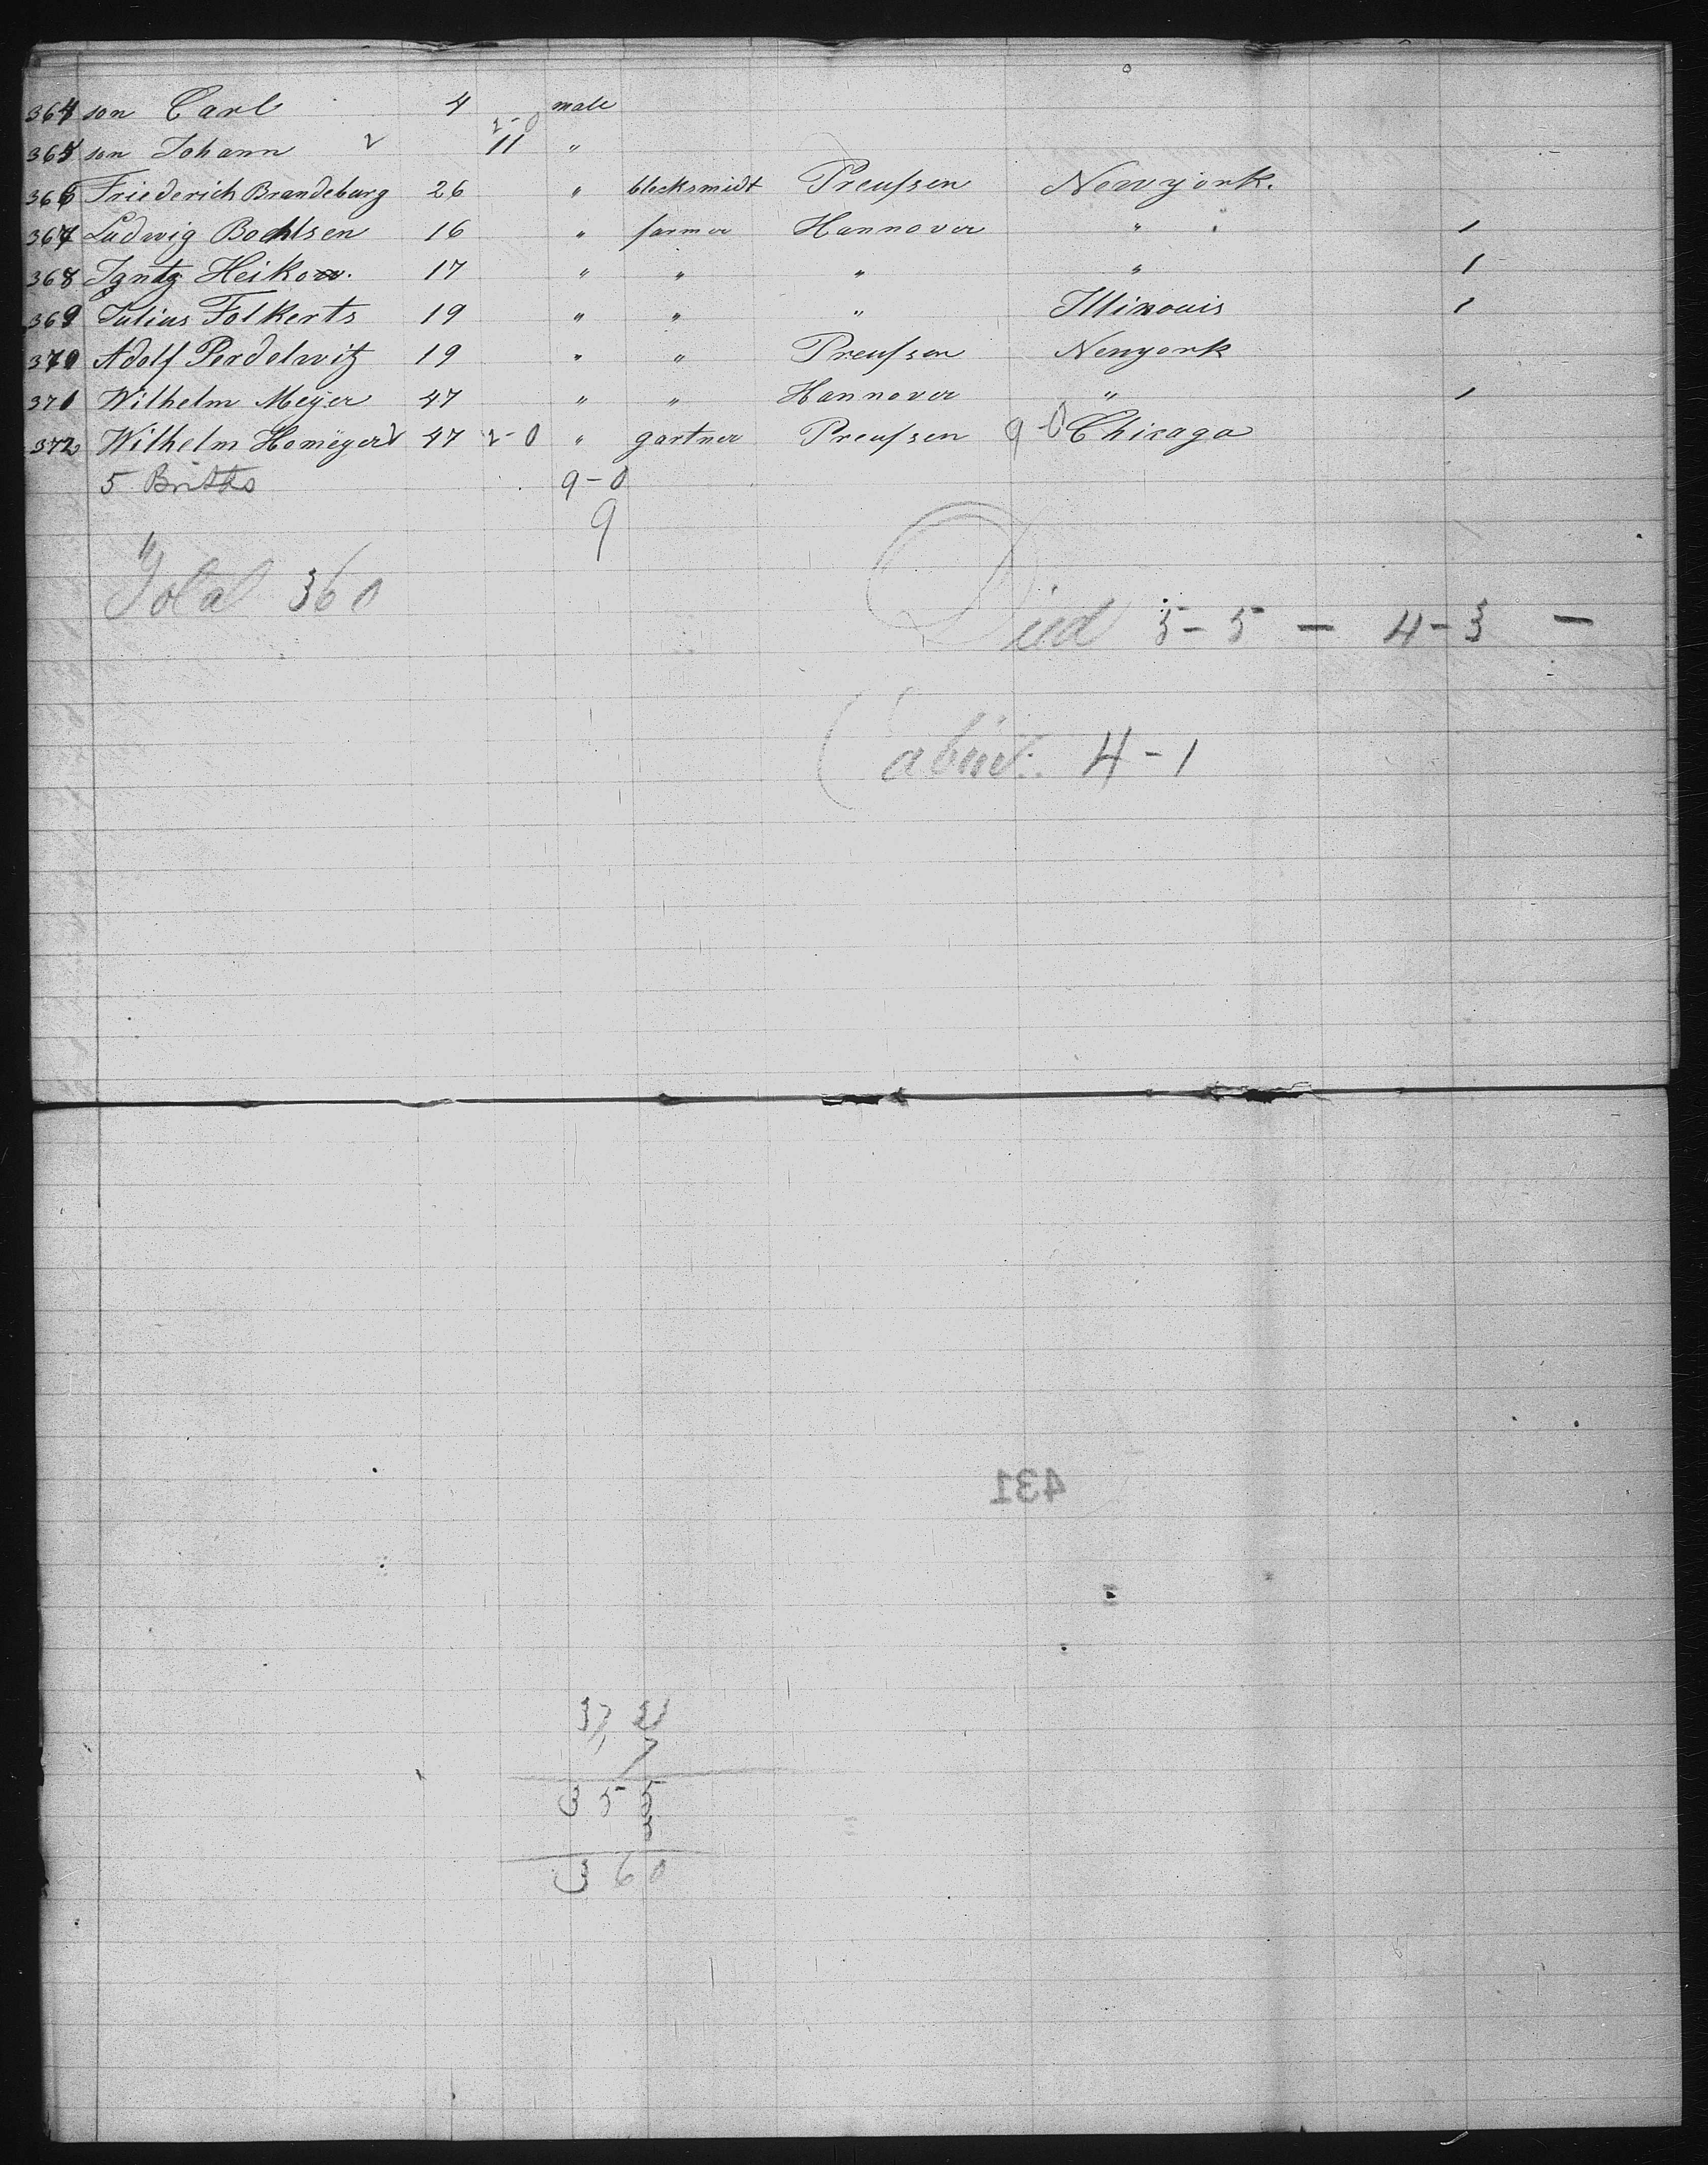 364 son Carl 4 male
365 son Johann 2 2-0 11 "
366 Friederich Brandeburg 26 " blecksmidt Preußen Newyork.
367 Ludwig Bochlsen 16 " farmer Hannover " 1
368 17 " " " " 1
369 Julius Folkerts 19 " " " Illinouis 1
370 Adolf Perdelwitz 19 " " Preußen Newyork
371 Wilhelm Meÿer 47 " " Hannover " 1
372 Wilhelm Homeÿer 47 2-0 " gartner Preußen 9-0 Chicago
5 9-0
9
Total 360
Died 5-5 — 4-3 —
Cabin 4-1
431
372
17
355
5
360